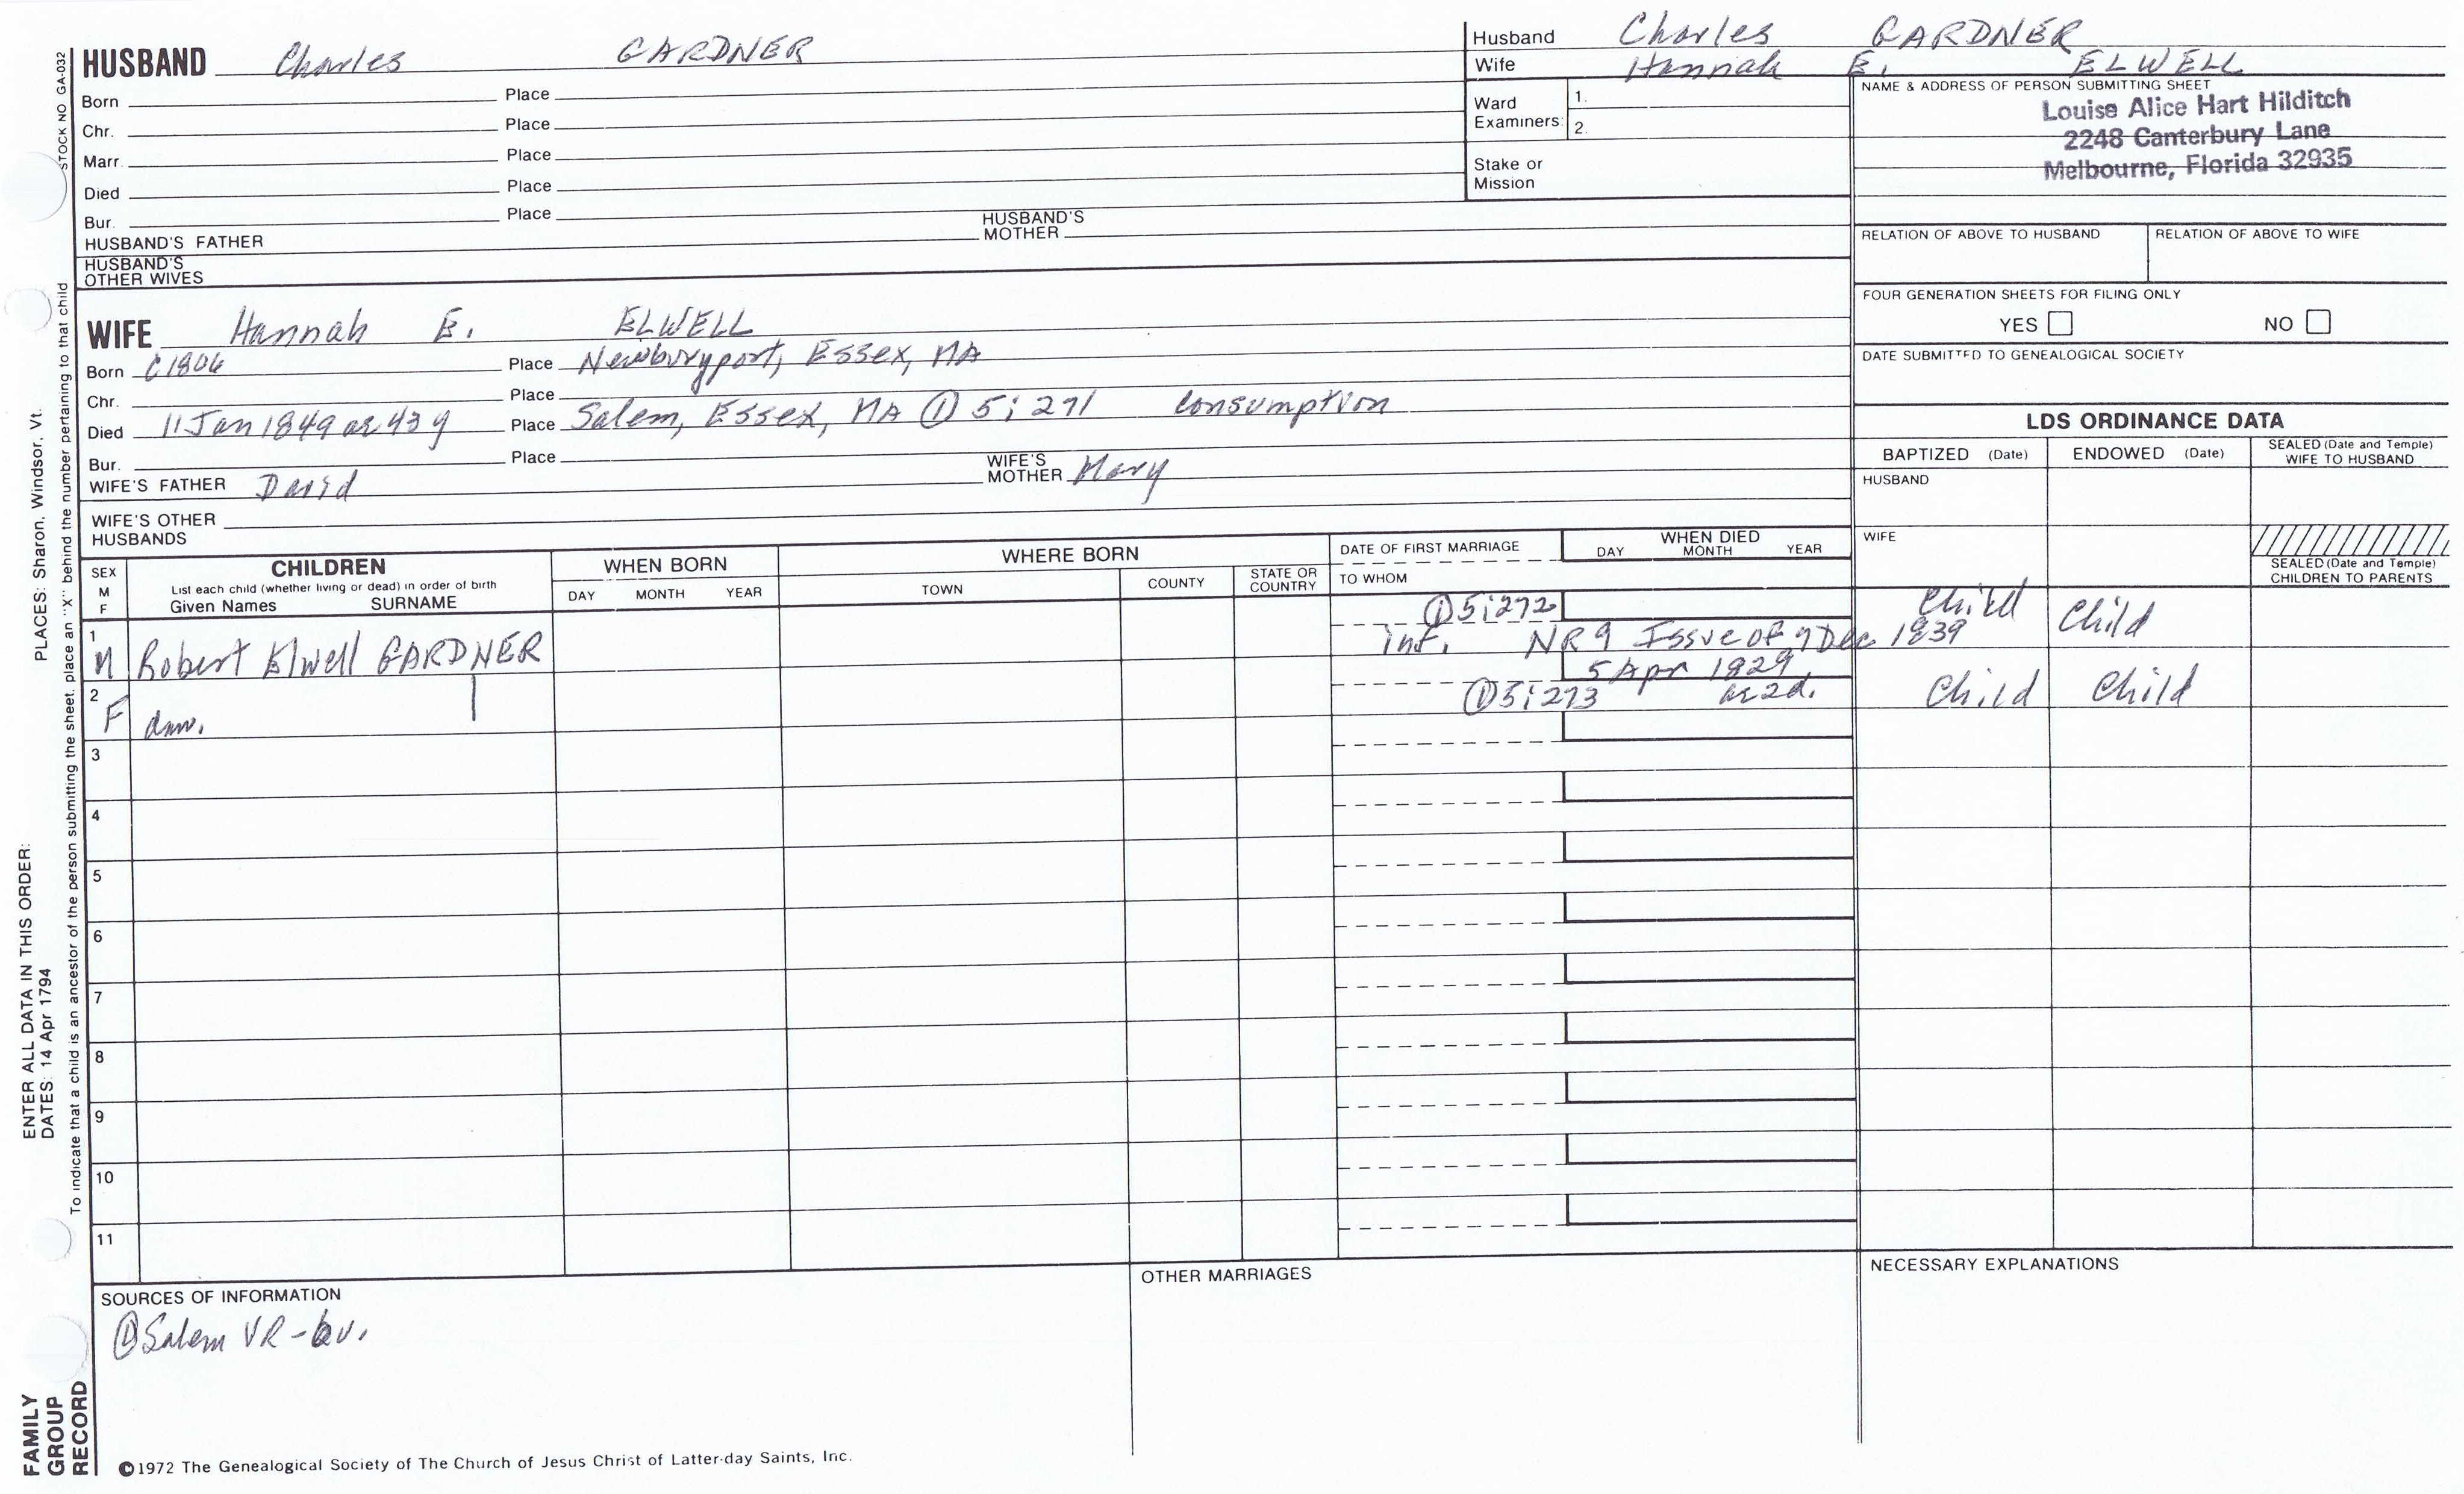 HUSBAND Charles GARDNER
Born Place
Chr. Place
Marr. Place
Died Place
Bur. Place
HUSBAND'S FATHER HUSBAND'S MOTHER
HUSBAND'S OTHER WIVES
WIFE Hannah E. ELWELL
Born C1806 Place Newburyport, Essex, MA
Chr. Place
Died 11 Jan 1849 ae 43 y Place Salem, Essex, MA ① 5:271 Consumption
Bur. Place
WIFE'S FATHER David WIFE'S MOTHER Mary
WIFE'S OTHER HUSBANDS
Husband Charles GARDNER
Wife Hannah E. ELWELL
Ward Examiners: 1.
2.
Stake or Mission
NAME & ADDRESS OF PERSON SUBMITTING SHEET
Louise Alice Hart Hilditch
2248 Canterbury Lane
Melbourne, Florida 32935
RELATION OF ABOVE TO HUSBAND RELATION OF ABOVE TO WIFE
FOUR GENERATION SHEETS FOR FILING ONLY
YES NO
DATE SUBMITTED TO GENEALOGICAL SOCIETY
LDS ORDINANCE DATA
BAPTIZED (Date) ENDOWED (Date) SEALED (Date and Temple) WIFE TO HUSBAND
HUSBAND
WIFE
SEALED (Date and Temple) CHILDREN TO PARENTS
SEX M F
CHILDREN
List each child (whether living or dead) in order of birth
Given Names SURNAME
WHEN BORN
DAY MONTH YEAR
WHERE BORN
TOWN COUNTY STATE OR COUNTRY
DATE OF FIRST MARRIAGE
TO WHOM
WHEN DIED
DAY MONTH YEAR
① 5:272 Child Child
1 M Robert Elwell GARDNER inf. NR9 Issue of 9 Dec 1839
5 Apr 1829
2 F dau. ① 5:273 ae 2d. Child Child
3
4
5
6
7
8
9
10
11
SOURCES OF INFORMATION
① Salem VR-6v.
OTHER MARRIAGES
NECESSARY EXPLANATIONS
©1972 The Genealogical Society of The Church of Jesus Christ of Latter-day Saints, Inc.
STOCK NO GA-032
To indicate that a child is an ancestor of the person submitting the sheet, place an "X" behind the number pertaining to that child
ENTER ALL DATA IN THIS ORDER:
DATES: 14 Apr 1794 PLACES: Sharon, Windsor, Vt.
FAMILY GROUP RECORD